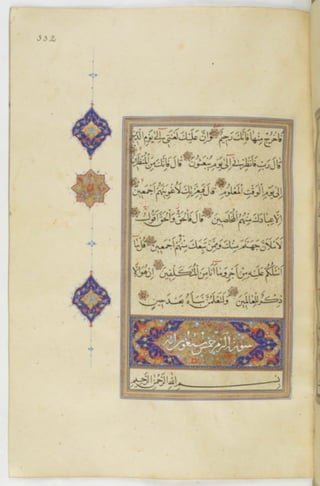 332
فَاخْرُجْ مِنْهَا فَاِنَّكَ رَجِيمٌ وَاِنَّ عَلَيْكَ لَعْنَتِي اِلٰى يَوْمِ الدِّينِ
قَالَ رَبِّ فَاَنْظِرْنِي اِلٰى يَوْمِ يُبْعَثُونَ قَالَ فَاِنَّكَ مِنَ الْمُنْظَرِينَ
اِلٰى يَوْمِ الْوَقْتِ الْمَعْلُومِ قَالَ فَبِعِزَّتِكَ لَاُغْوِيَنَّهُمْ اَجْمَعِينَ
اِلَّا عِبَادَكَ مِنْهُمُ الْمُخْلَصِينَ قَالَ فَالْحَقُّ وَالْحَقَّ اَقُولُ
لَاَمْلَاَنَّ جَهَنَّمَ مِنْكَ وَمِمَّنْ تَبِعَكَ مِنْهُمْ اَجْمَعِينَ قُلْ مَا
اَسْئَلُكُمْ عَلَيْهِ مِنْ اَجْرٍ وَمَا اَنَا مِنَ الْمُتَكَلِّفِينَ اِنْ هُوَ اِلَّا
ذِكْرٌ لِلْعَالَمِينَ وَلَتَعْلَمُنَّ نَبَاَهُ بَعْدَ حِينٍ
سورة الزمر خمس وسبعون آية
بسم الله الرحمن الرحيم